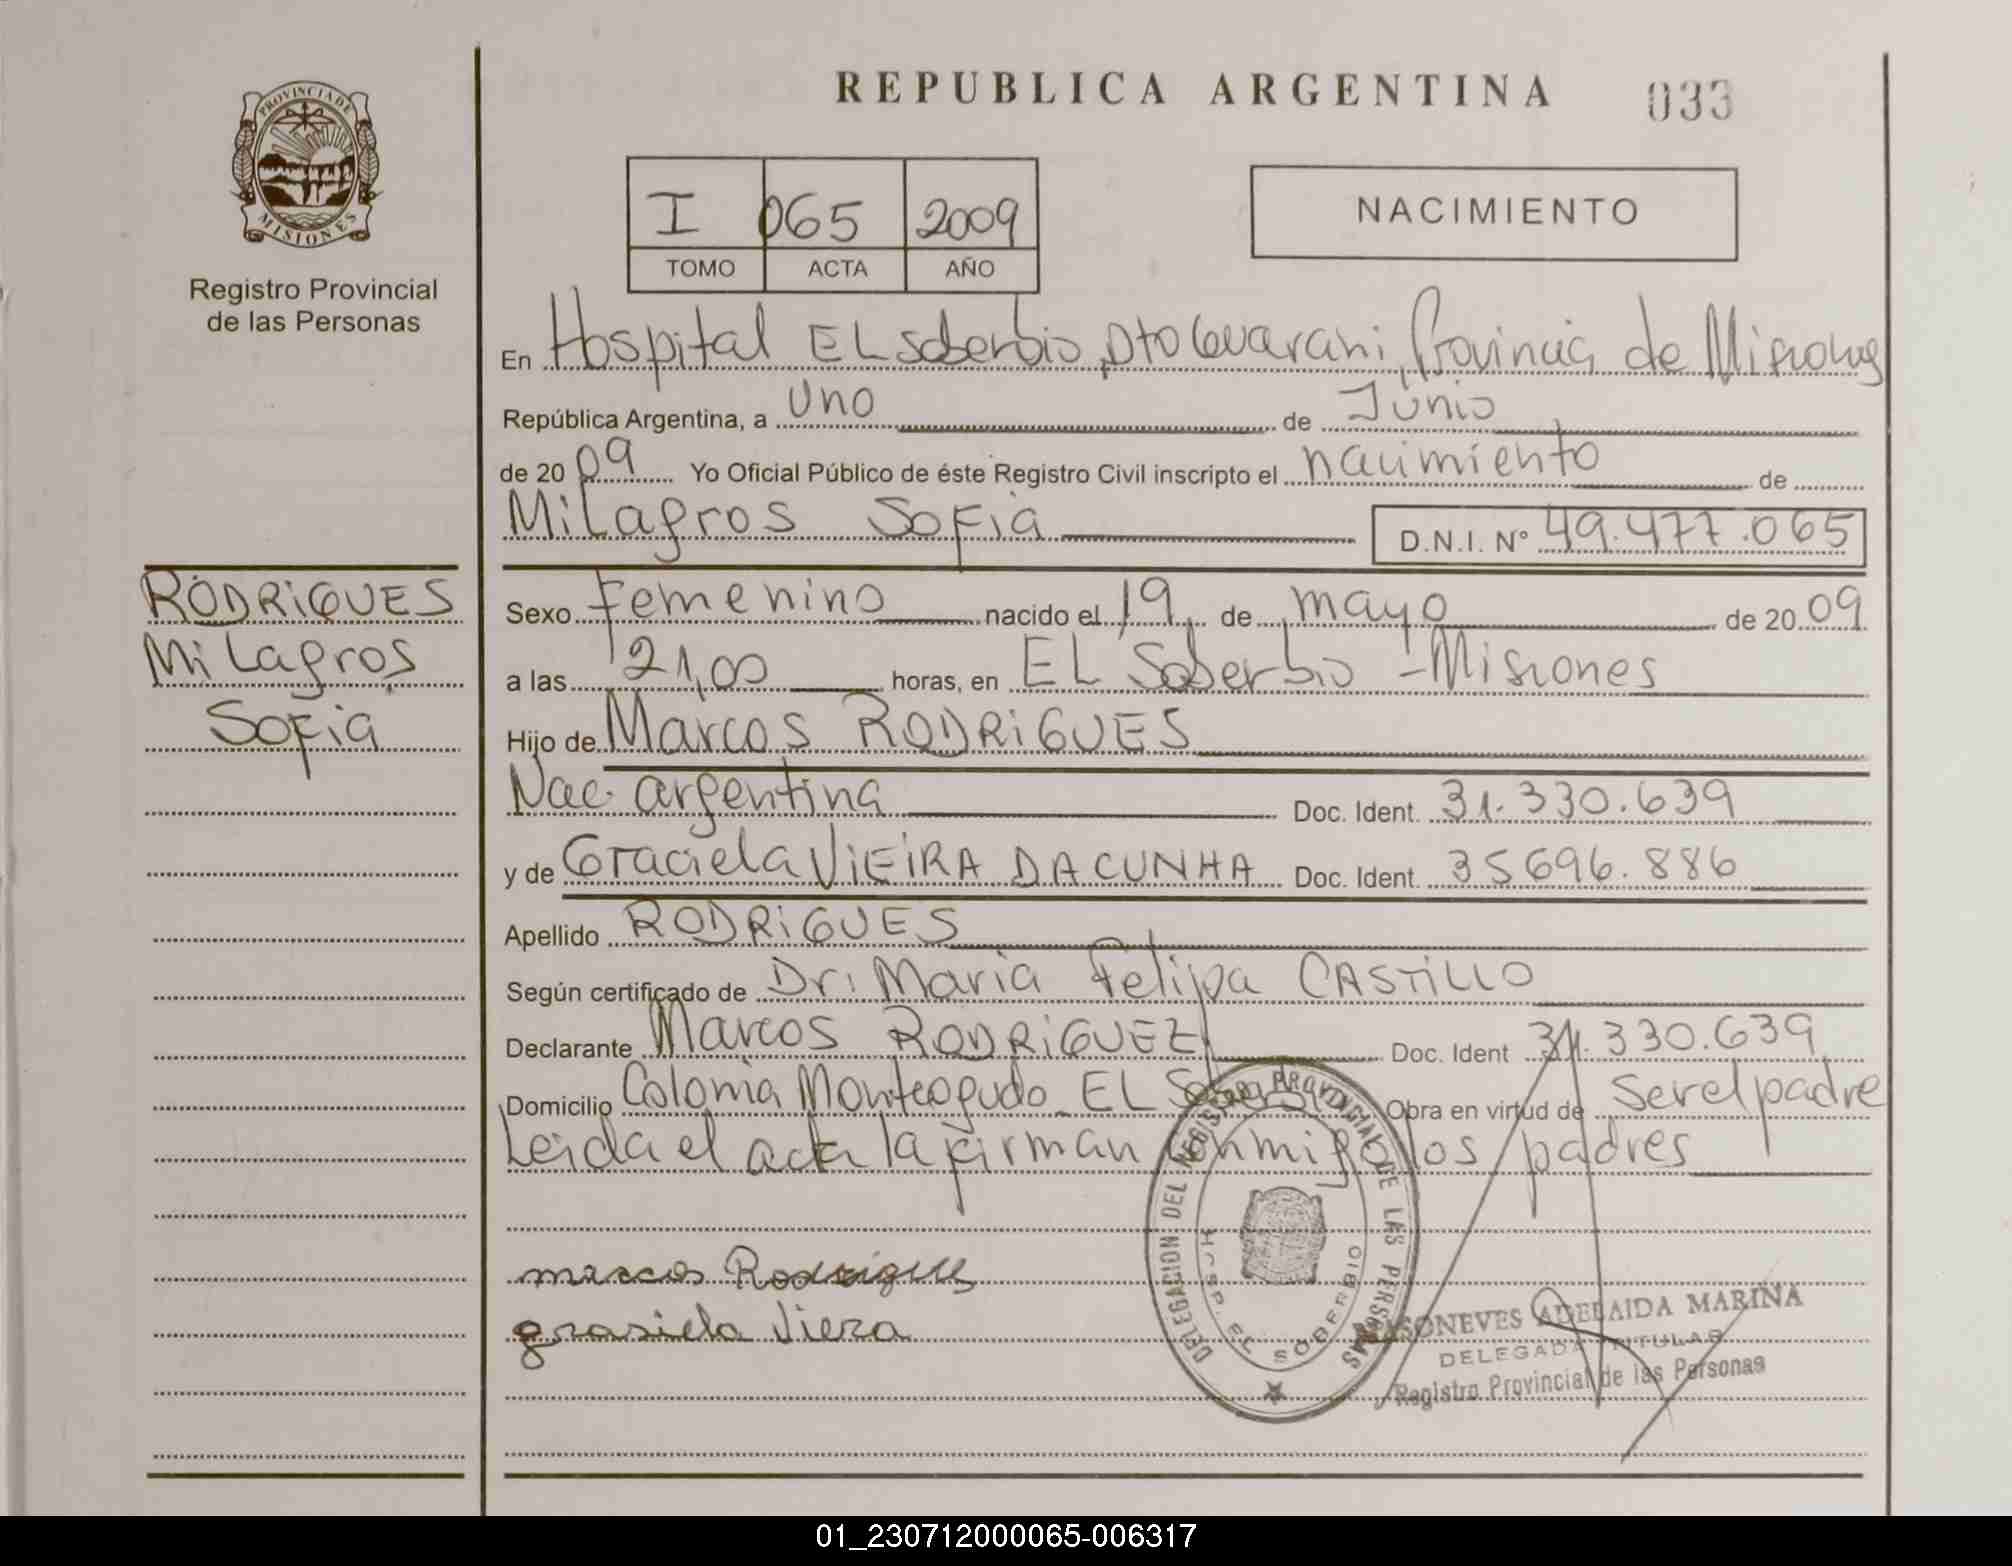 REPUBLICA ARGENTINA
033
PROVINCIA DE
MISIONES
Registro Provincial
de las Personas
I 065 2009
TOMO ACTA AÑO
NACIMIENTO
En Hospital EL Soberbio, Dto Guarani, Provincia de Misiones
República Argentina, a uno de Junio
de 2009 Yo Oficial Público de éste Registro Civil inscripto el nacimiento de
Milagros Sofia D.N.I. N° 49.477.065
RODRIGUES
Milagros
Sofia
Sexo Femenino nacido el 19 de mayo de 2009
a las 21,00 horas, en EL Soberbio - Misiones
Hijo de Marcos RODRIGUES
Nac. argentina Doc. Ident. 31.330.639
y de Graciela VIEIRA DA CUNHA Doc. Ident. 35696.886
Apellido RODRIGUES
Según certificado de Dr: Maria Felipa CASTILLO
Declarante Marcos RODRIGUEZ Doc. Ident 31.330.639
Domicilio Colonia Monteagudo EL Soberbio Obra en virtud de Ser el padre
Leida el acta la firman conmigo los padres
marcos Rodrigues
grasiela Viera
DELEGACION DEL REGISTRO PROVINCIAL DE LAS PERSONAS
HOSP. EL SOBERBIO
ADELAIDA MARINA
DELEGADA TITULAR
Registro Provincial de las Personas
01_230712000065-006317